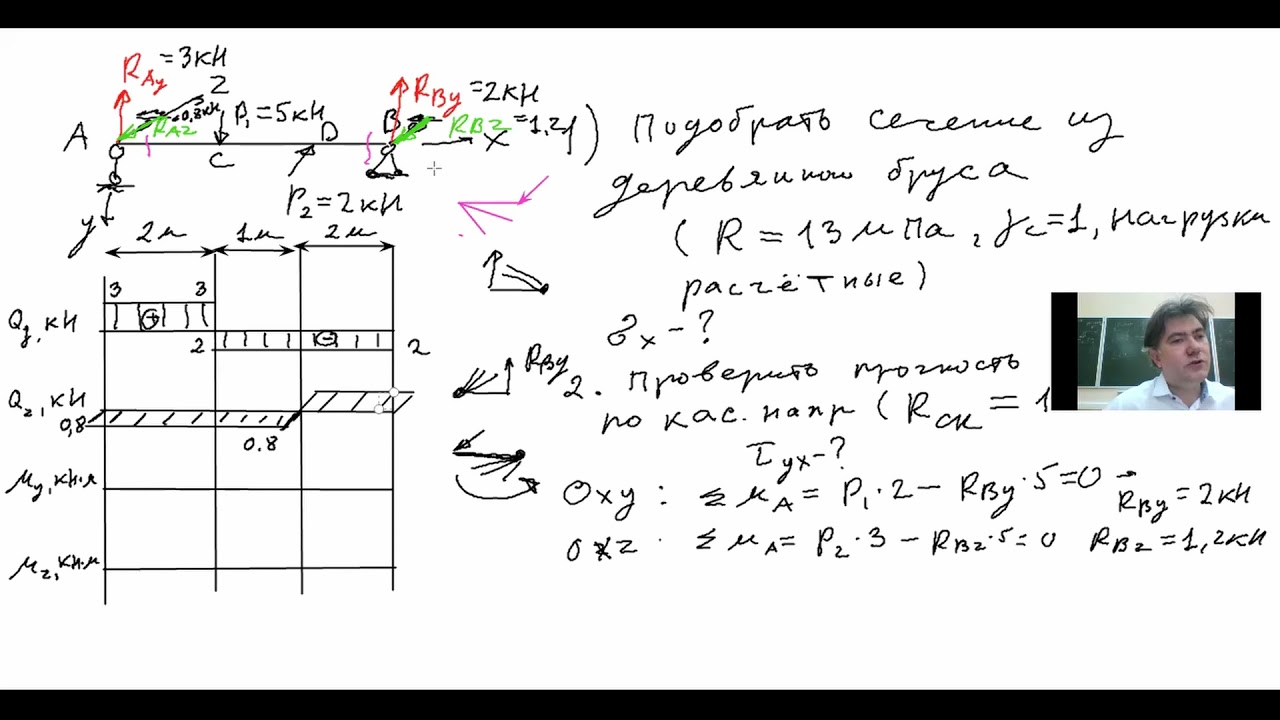 R_Ay = 3кН
z
0,8кН
R_Az
P₁ = 5кН
R_By = 2кН
R_Bz = 1,2
A
C
D
B
x
y
P₂ = 2кН
2м 1м 2м
Q_y, кН
3 3
2 2
Q_z, кН
0,8
0.8
M_y, кН·м
M_z, кН·м
R_By
1) Подобрать сечение из
деревянного бруса
( R = 13 мПа, γ_c = 1, нагрузки
расчётные )
σ_x - ?
2. Проверить прочность
по кас. напр ( R_ск = 1
τ_yx - ?
Oxy : Σ M_A = P₁·2 - R_By·5 = 0 → R_By = 2кН
Oxz : Σ M_A = P₂·3 - R_Bz·5 = 0 R_Bz = 1,2кН